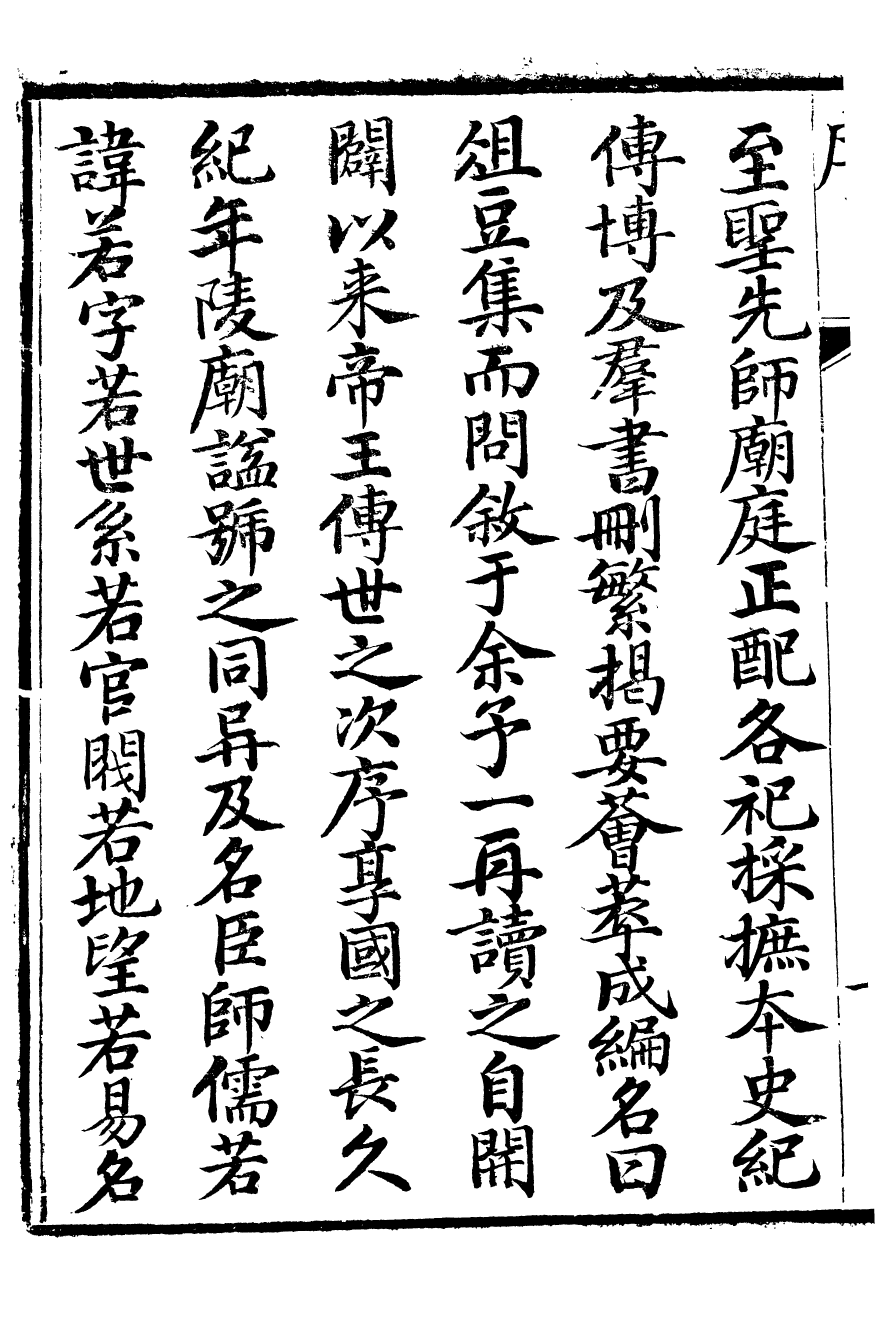 至聖先師廟庭正配各祀採摭本史紀
傳博及羣書刪繁掲要薈萃成編名曰
俎豆集而問敘于余予一再讀之自開
闢以来帝王傳世之次序享國之長久
紀年陵廟諡號之同异及名臣師儒若
諱若字若世系若官閥若地望若易名